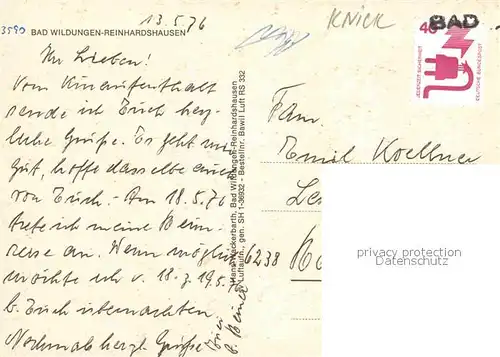 13.5.76
KNICK
3590
BAD WILDUNGEN-REINHARDSHAUSEN
BAD
40
JEDERZEIT SICHERHEIT
DEUTSCHE BUNDESPOST
Ihr Lieben!
Vom Kuraufenthalt
sende ich Euch herz-
liche Grüße. Es geht mir
gut, hoffe dasselbe auch
von Euch. Am 18.5.76
trete ich meine Heim-
reise an. Wenn möglich
möchte ich v. 18.-z. 19.5.76
b. Euch übernachten
Nochmals herzl. Grüße
Hans Wackerbarth, Bad Wildungen-Reinhardshausen
Luftaufn., gen. SH 1-36932 - Bestellnr. Bawil Luft RS 332
Fam.
Emil Koellner
6238
privacy protection
Datenschutz